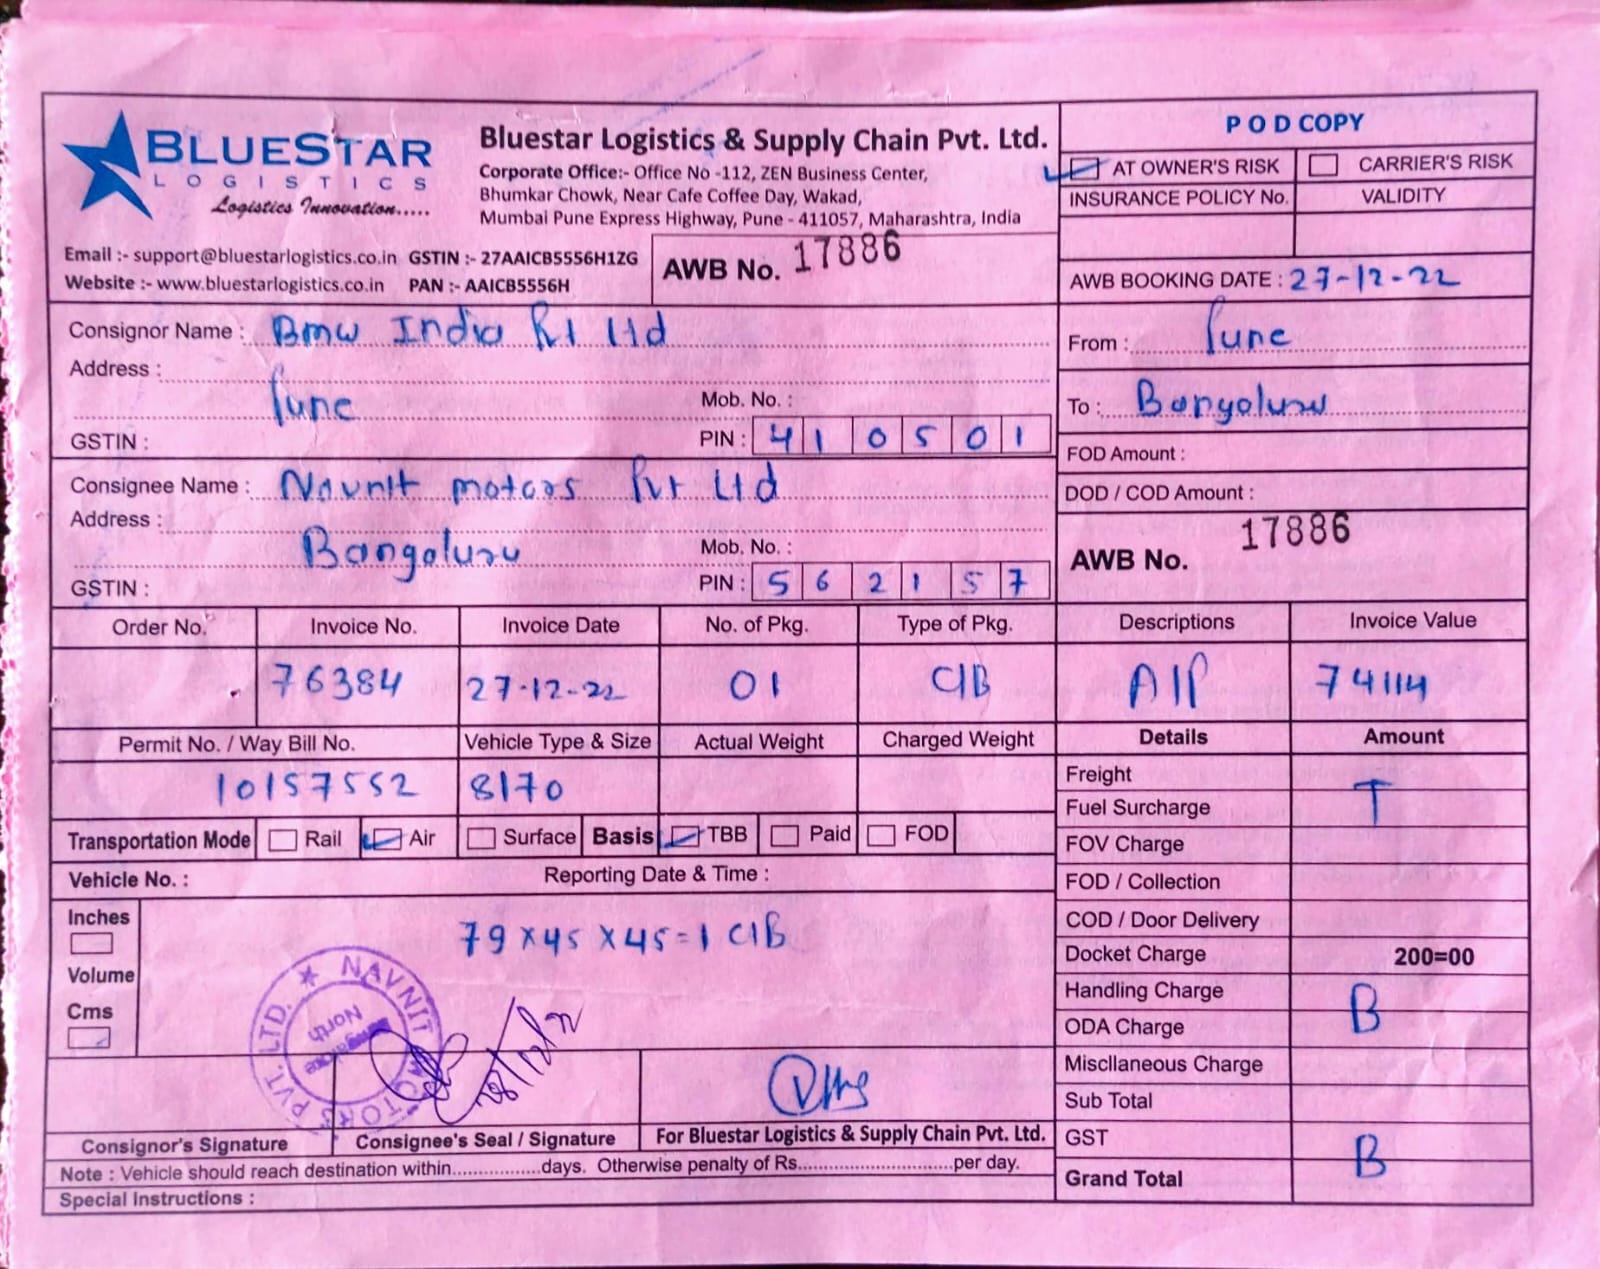 BLUESTAR
LOGISTICS
Logistics Innovation.....
Bluestar Logistics & Supply Chain Pvt. Ltd.
Corporate Office:- Office No -112, ZEN Business Center,
Bhumkar Chowk, Near Cafe Coffee Day, Wakad,
Mumbai Pune Express Highway, Pune - 411057, Maharashtra, India
Email :- support@bluestarlogistics.co.in GSTIN :- 27AAICB5556H1ZG
Website :- www.bluestarlogistics.co.in PAN :- AAICB5556H
AWB No. 17886
POD COPY
AT OWNER'S RISK CARRIER'S RISK
INSURANCE POLICY No. VALIDITY
AWB BOOKING DATE : 27-12-22
Consignor Name : Bmw India Pvt Ltd
Address :
Pune
Mob. No. :
GSTIN :
PIN : 410501
From : Pune
To : Bangaluru
FOD Amount :
DOD / COD Amount :
Consignee Name : Navnit motors Pvt Ltd
Address :
Bangaluru
Mob. No. :
GSTIN :
PIN : 562157
AWB No. 17886
Order No. Invoice No. Invoice Date No. of Pkg. Type of Pkg. Descriptions Invoice Value
76384 27-12-22 01 C/B A/P 74114
Permit No. / Way Bill No. Vehicle Type & Size Actual Weight Charged Weight Details Amount
10157552 8170
Transportation Mode Rail Air Surface Basis TBB Paid FOD
Vehicle No. : Reporting Date & Time :
Inches
Volume
Cms
79 x 45 x 45 = 1 C/B
Freight
T
Fuel Surcharge
FOV Charge
FOD / Collection
COD / Door Delivery
Docket Charge 200=00
Handling Charge
B
ODA Charge
Miscllaneous Charge
Sub Total
GST
B
Grand Total
NAVNIT MOTORS PVT. LTD.
North
28/12/22
Consignor's Signature Consignee's Seal / Signature For Bluestar Logistics & Supply Chain Pvt. Ltd.
Note : Vehicle should reach destination within.................days. Otherwise penalty of Rs..............................per day.
Special Instructions :